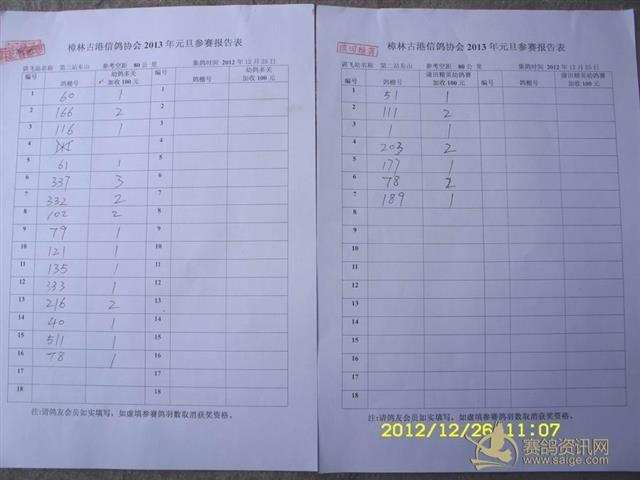 樟林古港信鸽协会 2013 年元旦参赛报告表
训飞站名称 第二站东山 参考空距 80 公 里 集鸽时间 2012 年 12 月 25 日
编号 鸽棚号 幼鸽多关 加收 100 元 编号 鸽棚号 幼鸽多关 加收 100 元
1 60 1 1
2 166 2 2
3 116 1 3
4 4
5 61 1 5
6 337 3 6
7 332 2 7
8 102 2 8
9 79 1 9
10 121 1 10
11 135 1 11
12 333 1 12
13 216 2 13
14 40 1 14
15 511 1 15
16 78 1 16
17 17
18 18
注:请鸽友会员如实填写，如虚填参赛鸽羽数取消获奖资格。
樟林古港信鸽协会 2013 年元旦参赛报告表
训飞站名称 第二站东山 参考空距 80 公 里 集鸽时间 2012 年 12 月 25 日
编号 鸽棚号 莆田精英幼鸽赛 加收 100 元 编号 鸽棚号 莆田精英幼鸽赛 加收 100 元
1 51 1 1
2 111 2 2
3 1 1 3
4 203 2 4
5 177 1 5
6 78 2 6
7 189 1 7
8 8
9 9
10 10
11 11
12 12
13 13
14 14
15 15
16 16
17 17
18 18
注:请鸽友会员如实填写，如虚填参赛鸽羽数取消获奖资格。
2012/12/26 11:07
赛鸽资讯网
www.saige.com